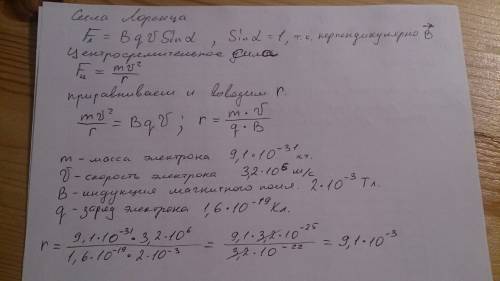 Сила Лоренца
Fл = B q V Sin α , Sin α = 1, т.к. перпендикулярно B⃗
Центростремительное сила
Fц = mV²/r
приравниваем и выводим r.
mV²/r = B q V ; r = m · V / q · B
m - масса электрона 9,1 · 10⁻³¹ кг.
V - скорость электрона 3,2 · 10⁶ м/с
B - индукция магнитного поля. 2 · 10⁻³ Тл.
q - заряд электрона 1,6 · 10⁻¹⁹ Кл.
r = 9,1 · 10⁻³¹ · 3,2 · 10⁶ / 1,6 · 10⁻¹⁹ · 2 · 10⁻³ = 9,1 · 3,2 · 10⁻²⁵ / 3,2 · 10⁻²² = 9,1 · 10⁻³